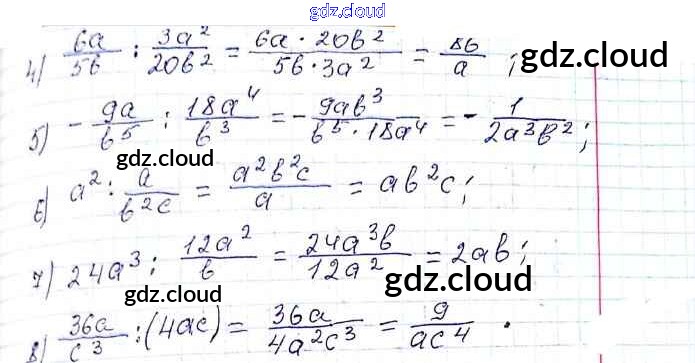 gdz.cloud
4) 6a/5b : 3a²/20b² = 6a · 20b²/5b · 3a² = 8b/a ; gdz.cloud
5) - 9a/b⁵ : 18a⁴/b³ = - 9ab³/b⁵ · 18a⁴ = - 1/2a³b² ;
gdz.cloud gdz.cloud
6) a² : a/b²c = a²b²c/a = ab²c ;
7) 24a³ : 12a²/b = 24a³b/12a² = 2ab ;
gdz.cloud gdz.cloud
8) 36a/c³ : (4ac) = 36a/4a²c³ = 9/ac⁴ .